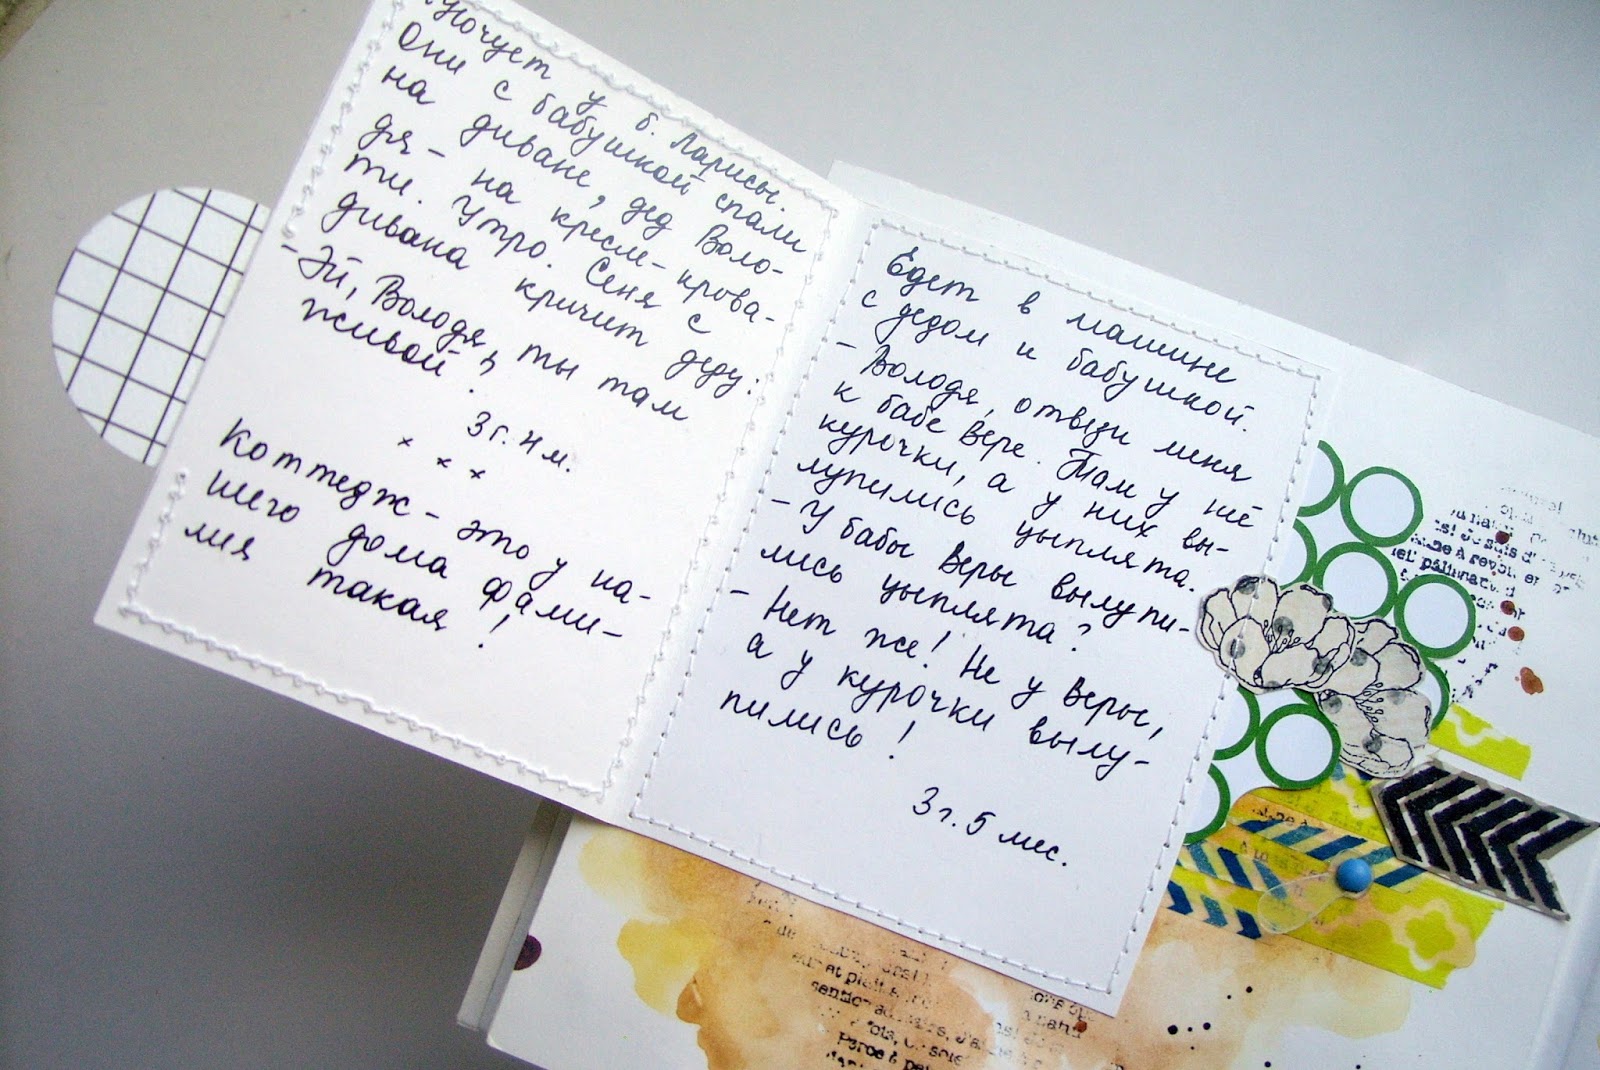 Ночует у б. Ларисы.
Они с бабушкой спали
на диване, дед Воло-
дя - на кресле-крова-
ти. Утро. Сеня с
дивана кричит деду:
- Эй, Володя, ты там
живой?
3 г. 4 м.
× × ×
Коттедж - это у на-
шего дома фами-
лия такая!
Едет в машине
с дедом и бабушкой.
- Володя, отвези меня
к бабе Вере. Там у неё
курочки, а у них вы-
лупились цыплята.
- У бабы Веры вылупи-
лись цыплята?
- Нет же! Не у Веры,
а у курочки вылу-
пились!
3 г. 5 мес.